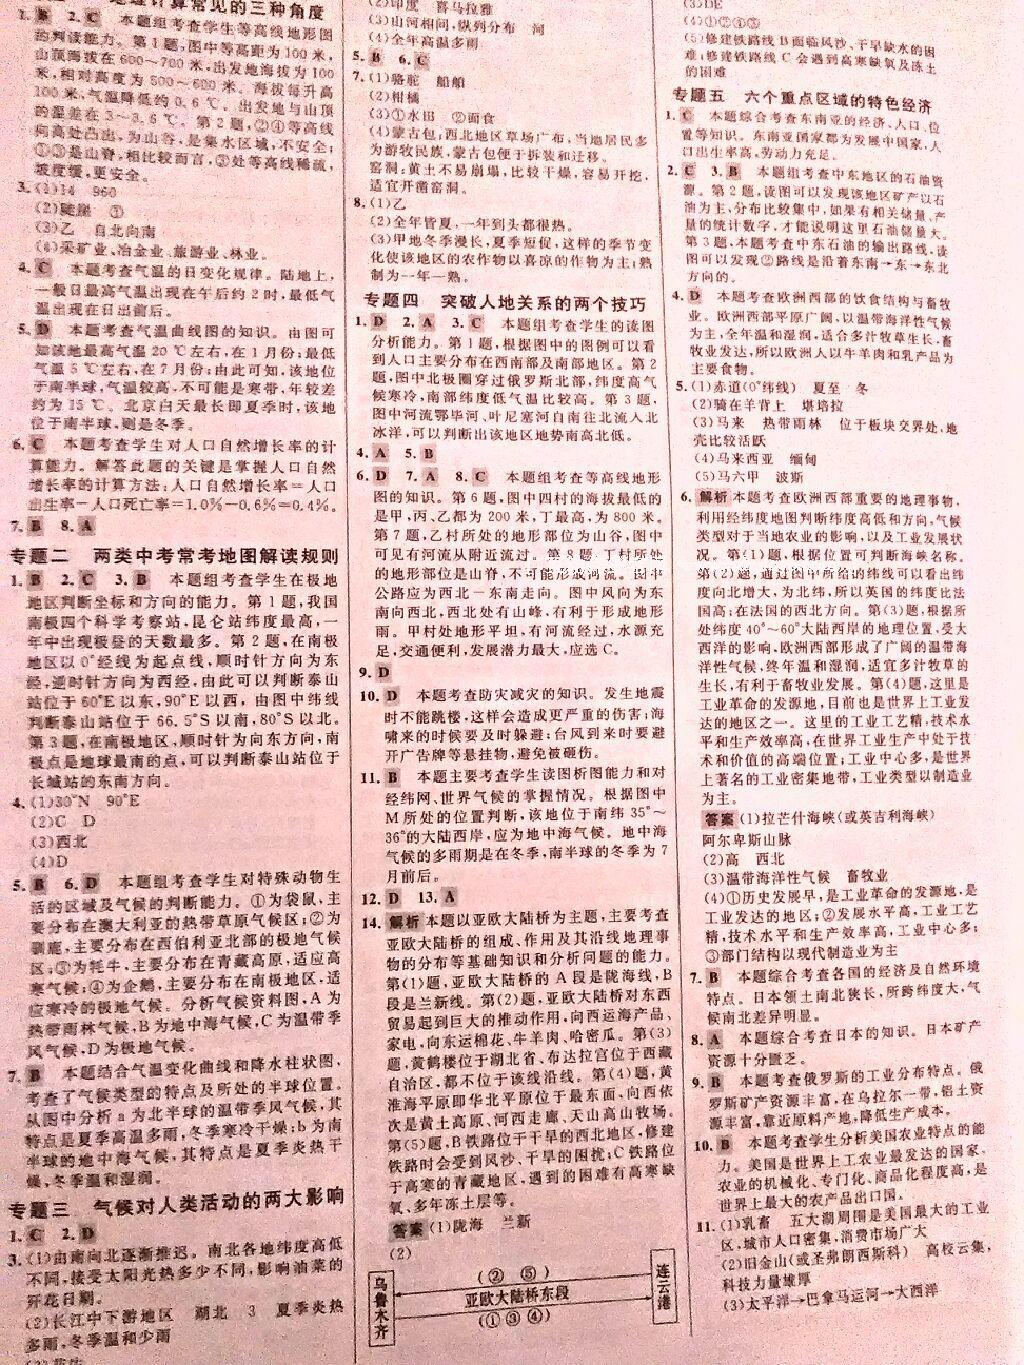 地理计算常见的三种角度
1. B 2. C 本题组考查学生等高线地形图
的判读能力。第1题,图中等高距为100米,
山顶海拔在600~700米,出发地海拔为100
米,相对高度为500~600米。海拔每升高
100米,气温降低约0.6℃。出发地与山顶
的温差在3~3.6℃。第2题,②④等高线
向高处凸出,为山谷,是集水区域,不安全;
①③是山脊,相比较而言,③处等高线稀疏,
坡度缓,更安全。
3. (1)14 960
(2)陡崖 ①
(3)乙 自北向南
(4)采矿业、冶金业、旅游业、林业。
4. C 本题考查气温的日变化规律。陆地上,
一般日最高气温出现在午后约2时,最低气
温出现在日出前后。
5. D 本题考查气温曲线图的知识。由图可
知该地最高气温20℃左右,在1月份;最低
气温5℃左右,在7月份;由此可知,该地位
于南半球,气温较高,不可能是寒带,年较差
约为15℃。北京白天最长即夏季时,该地
位于南半球,则是冬季。
6. C 本题考查学生对人口自然增长率的计
算能力。解答此题的关键是掌握人口自然
增长率的计算方法:人口自然增长率=人口
出生率-人口死亡率=1.0%-0.6%=0.4%。
7. B 8. A
专题二 两类中考常考地图解读规则
1. B 2. C 3. B 本题组考查学生在极地
地区判断坐标和方向的能力。第1题,我国
南极四个科学考察站,昆仑站纬度最高,一
年中出现极昼的天数最多。第2题,在南极
地区以0°经线为起点线,顺时针方向为东
经,逆时针方向为西经,由此可以判断泰山
站位于60°E以东,90°E以西,由图中纬线
判断泰山站位于66.5°S以南,80°S以北。
第3题,在南极地区,顺时针为向东方向,南
极点是地球最南的点,可以判断泰山站位于
长城站的东南方向。
4. (1)30°N 90°E
(2)C D
(3)西北
(4)D
5. B 6. D 本题组考查学生对特殊动物生
活的区域及气候的判断能力。①为袋鼠,主
要分布在澳大利亚的热带草原气候区;②为
驯鹿,主要分布在西伯利亚北部的极地气候
区;③为牦牛,主要分布在青藏高原,适应高
寒气候;④为企鹅,主要分布在南极地区,适
应寒冷的极地气候。分析气候资料图,A为
热带雨林气候,B为地中海气候,C为温带季
风气候,D为极地气候。
7. B 本题结合气温变化曲线和降水柱状图,
考查了气候类型的特点及所处的半球位置。
从图中分析a为北半球的温带季风气候,其
特点是夏季高温多雨,冬季寒冷干燥;b为南
半球的地中海气候,其特点是夏季炎热干
燥,冬季温和湿润。
专题三 气候对人类活动的两大影响
1. C 2. D
3. (1)由南向北逐渐推迟。南北各地纬度高低
不同,接受太阳光热多少不同,影响油菜的
开花日期。
(2)长江中下游地区 湖北 3 夏季炎热
多雨,冬季温和少雨
(2)印度 喜马拉雅
(3)山河相间,纵列分布 河
(4)全年高温多雨
5. B 6. C
7. (1)骆驼 船舶
(2)柑橘
(3)①水田 ②面食
(4)蒙古包:西北地区草场广布,当地居民多
为游牧民族,蒙古包便于拆装和迁移。
窑洞:黄土不易崩塌,比较干燥,容易开挖,
适宜开凿窑洞。
8. (1)乙
(2)全年皆夏,一年到头都很热。
(3)甲地冬季漫长,夏季短促,这样的季节变
化使该地区的农作物以喜凉的作物为主;熟
制为一年一熟。
专题四 突破人地关系的两个技巧
1. D 2. A 3. C 本题组考查学生的读图
分析能力。第1题,根据图中的图例可以看
到人口主要分布在西南部及南部地区。第2
题,图中北极圈穿过俄罗斯北部,纬度高气
候寒冷,南部纬度低气温比较高。第3题,
图中河流鄂毕河、叶尼塞河自南往北流入北
冰洋,可以判断出该地区地势南高北低。
4. A 5. B
6. D 7. A 8. C 本题组考查等高线地形
图的知识。第6题,图中四村的海拔最低的
是甲,丙、乙都为200米,丁最高,为800米。
第7题,乙村所处的地形部位为山谷,图中
可见有河流从附近流过。第8题,丁村所处
的地形部位是山脊,不可能形成河流。图中
公路应为西北—东南走向。图中风向为东
南向西北,西北处有山峰,有利于形成地形
雨。甲村处地形平坦,有河流经过,水源充
足,交通便利,发展潜力最大,应选C。
9. D
10. D 本题考查防灾减灾的知识。发生地震
时不能跳楼,这样会造成更严重的伤害;海
啸来的时候要及时躲避;台风到来时要避
开广告牌等悬挂物,避免被砸伤。
11. B 本题主要考查学生读图析图能力和对
经纬网、世界气候的掌握情况。根据图中
M所处的位置判断,该地位于南纬35°~
36°的大陆西岸,应为地中海气候。地中海
气候的多雨期是在冬季,南半球的冬季为7
月前后。
12. D 13. A
14. 解析 本题以亚欧大陆桥为主题,主要考查
亚欧大陆桥的组成、作用及其沿线地理事
物的分布等基础知识和分析问题的能力。
第(1)题,亚欧大陆桥的A段是陇海线,B
段是兰新线。第(2)题,亚欧大陆桥对东西
贸易起到巨大的推动作用,向西运海产品、
家电,向东运棉花、牛羊肉、哈密瓜。第(3)
题,黄鹤楼位于湖北省、布达拉宫位于西藏
自治区,都不位于该线沿线。第(4)题,黄
淮海平原即华北平原位于最东面,向西依
次是黄土高原、河西走廊、天山高山牧场。
第(5)题,B铁路位于干旱的西北地区,修建
铁路时会受到风沙、干旱的困扰;C铁路位
于高寒的青藏地区,遇到的困难有高寒缺
氧、多年冻土层等。
答案 (1)陇海 兰新
(2)
乌鲁木齐
(② ⑤)
亚欧大陆桥东段
(① ③ ④)
连云港
(3)DE
(4)①②④③
(5)修建铁路线B面临风沙、干旱缺水的困
难;修建铁路线C会遇到高寒缺氧及冻土
的困难
专题五 六个重点区域的特色经济
1. C 本题综合考查东南亚的经济、人口、位
置等知识。东南亚国家都为发展中国家,人
口出生率高,劳动力充足。
2. C 3. B 本题组考查中东地区的石油资
源。第2题,读图可以发现该地区矿产以石
油为主,分布比较集中,如果有相关储量、产
量的统计数字,才能说明这里石油储量大。
第3题,本题考查中东石油的输出路线,读
图可以发现②路线是沿着东南→东→东北
方向的。
4. D 本题考查欧洲西部的饮食结构与畜牧
业。欧洲西部平原广阔,以温带海洋性气候
为主,全年温和湿润,适合多汁牧草生长,畜
牧业发达,所以欧洲人以牛羊肉和乳产品为
主要食物。
5. (1)赤道(0°纬线) 夏至 冬
(2)骑在羊背上 堪培拉
(3)马来 热带雨林 位于板块交界处,地
壳比较活跃
(4)马来西亚 缅甸
(5)马六甲 波斯
6. 解析 本题考查欧洲西部重要的地理事物,
利用经纬度地图判断纬度高低和方向,气候
类型对于当地农业的影响,以及工业发展状
况。第(1)题,根据位置可判断海峡名称。
第(2)题,通过图中所给的纬线可以看出纬
度向北增大,为北纬,所以英国的纬度比法
国高;在法国的西北方向。第(3)题,根据所
处纬度40°~60°大陆西岸的地理位置,受大
西洋的影响,欧洲西部形成了广阔的温带海
洋性气候,终年温和湿润,适宜多汁牧草的
生长,有利于畜牧业发展。第(4)题,这里是
工业革命的发源地,目前也是世界上工业发
达的地区之一。这里的工业工艺精,技术水
平和生产效率高,在世界工业生产中处于技
术和价值的高端位置;工业中心多,是世界
上著名的工业密集地带,工业类型以制造业
为主。
答案 (1)拉芒什海峡(或英吉利海峡)
阿尔卑斯山脉
(2)高 西北
(3)温带海洋性气候 畜牧业
(4)①历史发展早,是工业革命的发源地,是
工业发达的地区;②发展水平高,工业工艺
精,技术水平和生产效率高,工业中心多;
③部门结构以现代制造业为主
7. B 本题综合考查各国的经济及自然环境
特点。日本领土南北狭长,所跨纬度大,气
候南北差异明显。
8. A 本题综合考查日本的知识。日本矿产
资源十分匮乏。
9. B 本题考查俄罗斯的工业分布特点。俄
罗斯矿产资源丰富,在乌拉尔一带,铝土资
源丰富,靠近原料产地,降低生产成本。
10. B 本题考查学生分析美国农业特点的能
力。美国是世界上工农业最发达的国家,
农业的机械化、专门化、商品化程度高,是
世界上最大的农产品出口国。
11. (1)乳畜 五大湖周围是美国最大的工业
区,城市人口密集,消费市场广大
(2)旧金山(或圣弗朗西斯科) 高校云集,
科技力量雄厚
(3)太平洋→巴拿马运河→大西洋